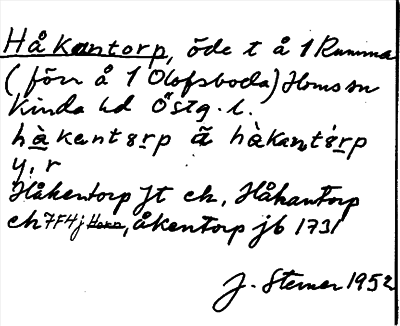 Håkantorp, öde t å 1 Rumma
(förr å 1 Olofsboda) Horns sn
Kinda hd Östg. l.
hàkent8rp ã hàkant8rp
y, r
Håkentorp jt ek, Håkantorp
ek 7F4j Horn, åkentorp jb 1731
J. Sterner 1952